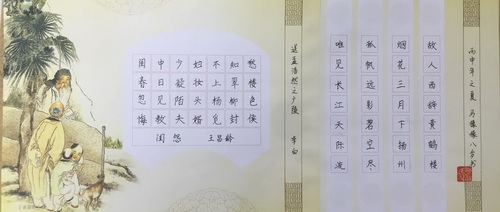 丙申年之夏 八岁书
故人西辞黄鹤楼
烟花三月下扬州
孤帆远影碧空尽
唯见长江天际流
送孟浩然之广陵 李白
闺中少妇不知愁
春日凝妆上翠楼
忽见陌头杨柳色
悔教夫婿觅封侯
闺怨 王昌龄